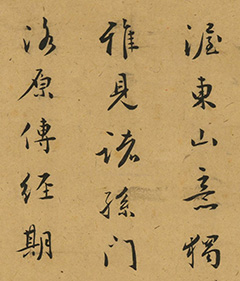 渥東山意獨
雅見諸孫门
洛原傳經期